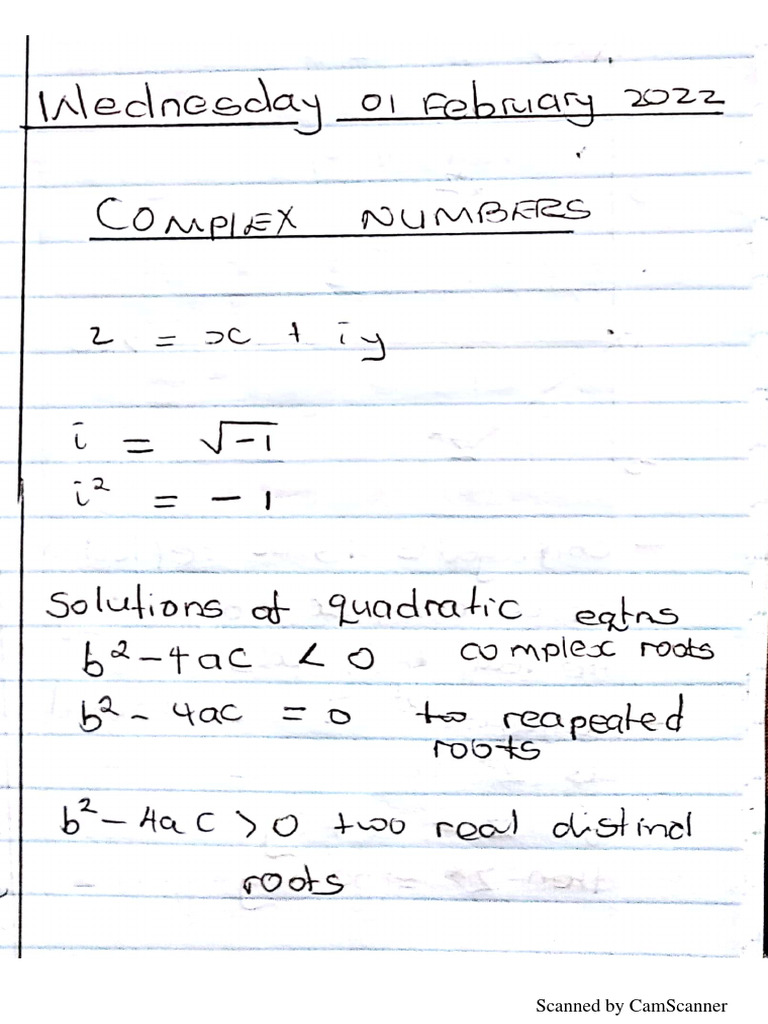 Wednesday 01 February 2022
COMPLEX NUMBERS
z = x + iy
i = √-1
i² = -1
Solutions of quadratic eqtns
b² - 4ac < 0 complex roots
b² - 4ac = 0 two reapeated
roots
b² - 4ac > 0 two real distinct
roots
Scanned by CamScanner